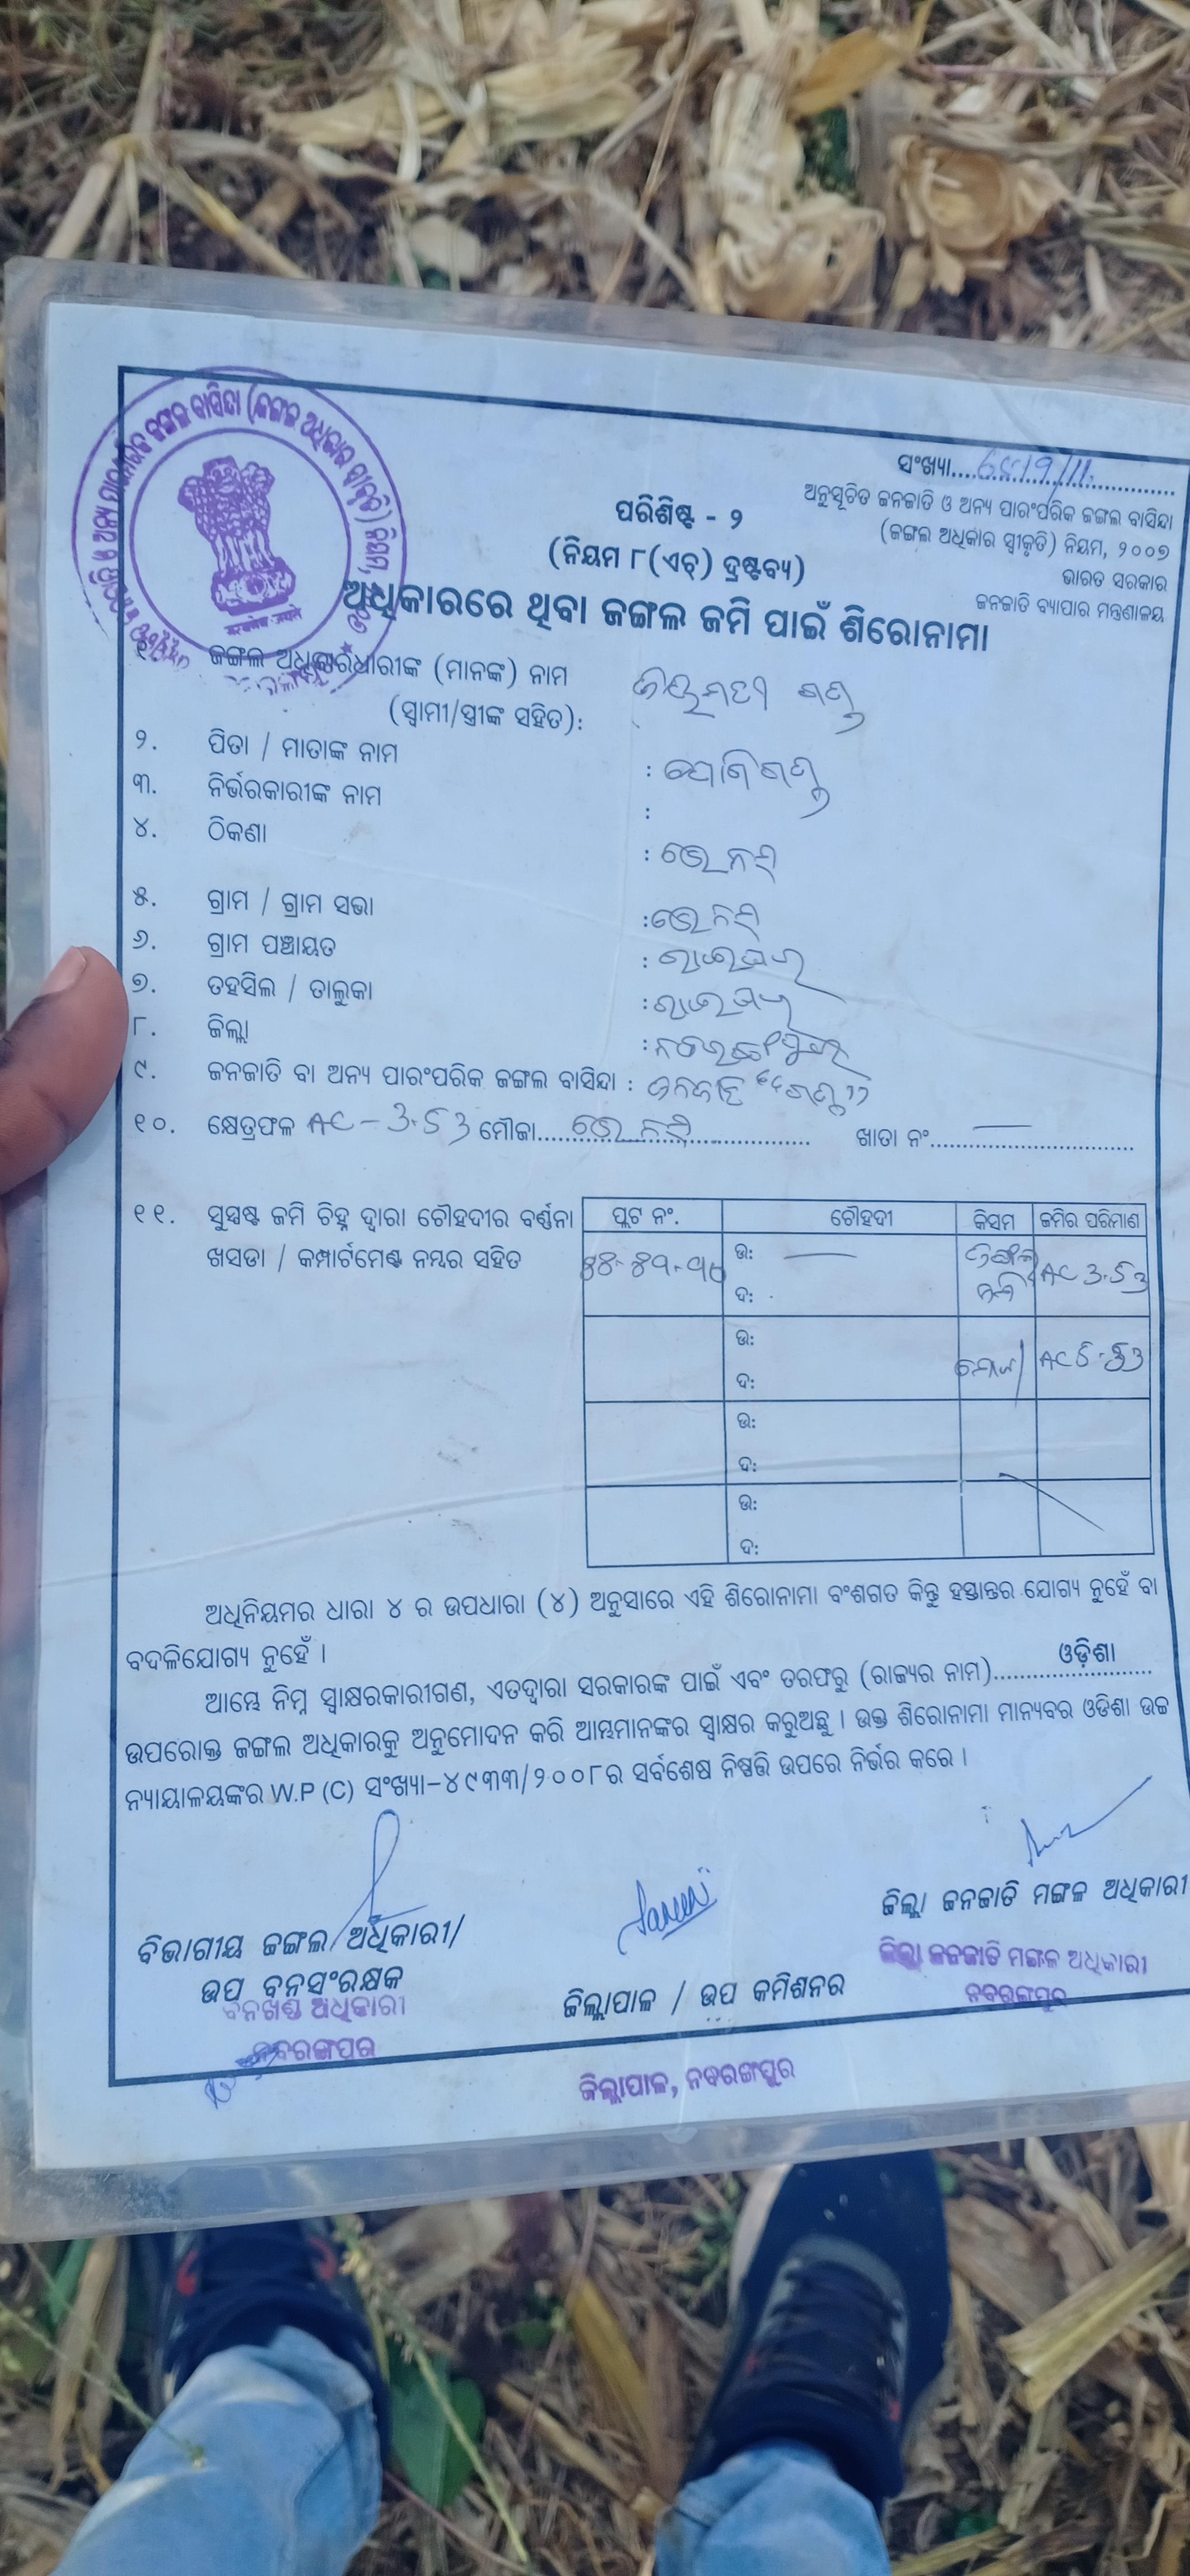 ଅନ୍ୟ ପାରଂପରିକ ଜଙ୍ଗଲ ବାସିନ୍ଦା (ଜଙ୍ଗଲ ଅଧିକାର ସ୍ୱୀକୃତି) ନିୟମ
सत्यमेव जयते
ସଂଖ୍ୟା....
ଅନୁସୂଚିତ ଜନଜାତି ଓ ଅନ୍ୟ ପାରଂପରିକ ଜଙ୍ଗଲ ବାସିନ୍ଦା
(ଜଙ୍ଗଲ ଅଧିକାର ସ୍ୱୀକୃତି) ନିୟମ, ୨୦୦୭
ଭାରତ ସରକାର
ଜନଜାତି ବ୍ୟାପାର ମନ୍ତ୍ରଣାଳୟ
ପରିଶିଷ୍ଟ - ୨
(ନିୟମ ୮(ଏଚ୍) ଦ୍ରଷ୍ଟବ୍ୟ)
ଅଧିକାରରେ ଥିବା ଜଙ୍ଗଲ ଜମି ପାଇଁ ଶିରୋନାମା
୧. ଜଙ୍ଗଲ ଅଧିକାରଧାରୀଙ୍କ (ମାନଙ୍କ) ନାମ
(ସ୍ୱାମୀ/ସ୍ତ୍ରୀଙ୍କ ସହିତ):
୨. ପିତା / ମାତାଙ୍କ ନାମ :
୩. ନିର୍ଭରକାରୀଙ୍କ ନାମ :
୪. ଠିକଣା :
୫. ଗ୍ରାମ / ଗ୍ରାମ ସଭା :
୬. ଗ୍ରାମ ପଞ୍ଚାୟତ : ରାଇଘର
୭. ତହସିଲ / ତାଲୁକା : ରାଇଘର
୮. ଜିଲ୍ଲା : ନବରଙ୍ଗପୁର
୯. ଜନଜାତି ବା ଅନ୍ୟ ପାରଂପରିକ ଜଙ୍ଗଲ ବାସିନ୍ଦା : ଜନଜାତି "ଗଣ୍ଡ"
୧୦. କ୍ଷେତ୍ରଫଳ AC - 3.53 ମୌଜା.... ଖାତା ନଂ....
୧୧. ସୁସ୍ପଷ୍ଟ ଜମି ଚିହ୍ନ ଦ୍ୱାରା ଚୌହଦୀର ବର୍ଣ୍ଣନା
ଖସଡା / କମ୍ପାର୍ଟମେଣ୍ଟ ନମ୍ବର ସହିତ
ପ୍ଲଟ ନଂ. ଚୌହଦୀ କିସମ ଜମିର ପରିମାଣ
ଉ: AC 3.53
ଦ:
ଉ:
ଦ:
ଉ:
ଦ:
ଉ:
ଦ:
ଅଧିନିୟମର ଧାରା ୪ ର ଉପଧାରା (୪) ଅନୁସାରେ ଏହି ଶିରୋନାମା ବଂଶଗତ କିନ୍ତୁ ହସ୍ତାନ୍ତର ଯୋଗ୍ୟ ନୁହେଁ ବା
ବଦଳିଯୋଗ୍ୟ ନୁହେଁ ।
ଆମ୍ଭେ ନିମ୍ନ ସ୍ୱାକ୍ଷରକାରୀଗଣ, ଏତଦ୍ୱାରା ସରକାରଙ୍କ ପାଇଁ ଏବଂ ତରଫରୁ (ରାଜ୍ୟର ନାମ)....ଓଡ଼ିଶା....
ଉପରୋକ୍ତ ଜଙ୍ଗଲ ଅଧିକାରକୁ ଅନୁମୋଦନ କରି ଆମ୍ଭମାନଙ୍କର ସ୍ୱାକ୍ଷର କରୁଅଛୁ । ଉକ୍ତ ଶିରୋନାମା ମାନ୍ୟବର ଓଡିଶା ଉଚ୍ଚ
ନ୍ୟାୟାଳୟଙ୍କର W.P (C) ସଂଖ୍ୟା-୪୯୩୩/୨୦୦୮ର ସର୍ବଶେଷ ନିଷ୍ପତ୍ତି ଉପରେ ନିର୍ଭର କରେ ।
ବିଭାଗୀୟ ଜଙ୍ଗଲ ଅଧିକାରୀ/
ଉପ ବନସଂରକ୍ଷକ
ବନଖଣ୍ଡ ଅଧିକାରୀ
ନବରଙ୍ଗପୁର
ଜିଲ୍ଲାପାଳ / ଉପ କମିଶନର
ଜିଲ୍ଲାପାଳ, ନବରଙ୍ଗପୁର
ଜିଲ୍ଲା ଜନଜାତି ମଙ୍ଗଳ ଅଧିକାରୀ
ଜିଲ୍ଲା ଜନଜାତି ମଙ୍ଗଳ ଅଧିକାରୀ
ନବରଙ୍ଗପୁର